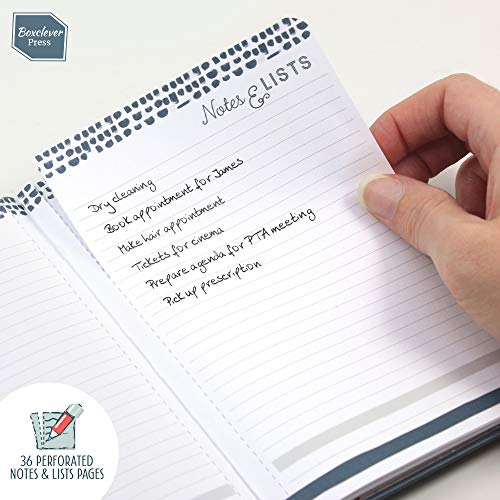 Boxclever
Press
Notes & LISTS
Dry cleaning
Book appointment for James
Make hair appointment
Tickets for cinema
Prepare agenda for PTA meeting
Pick up prescripton
36 PERFORATED
NOTES & LISTS PAGES